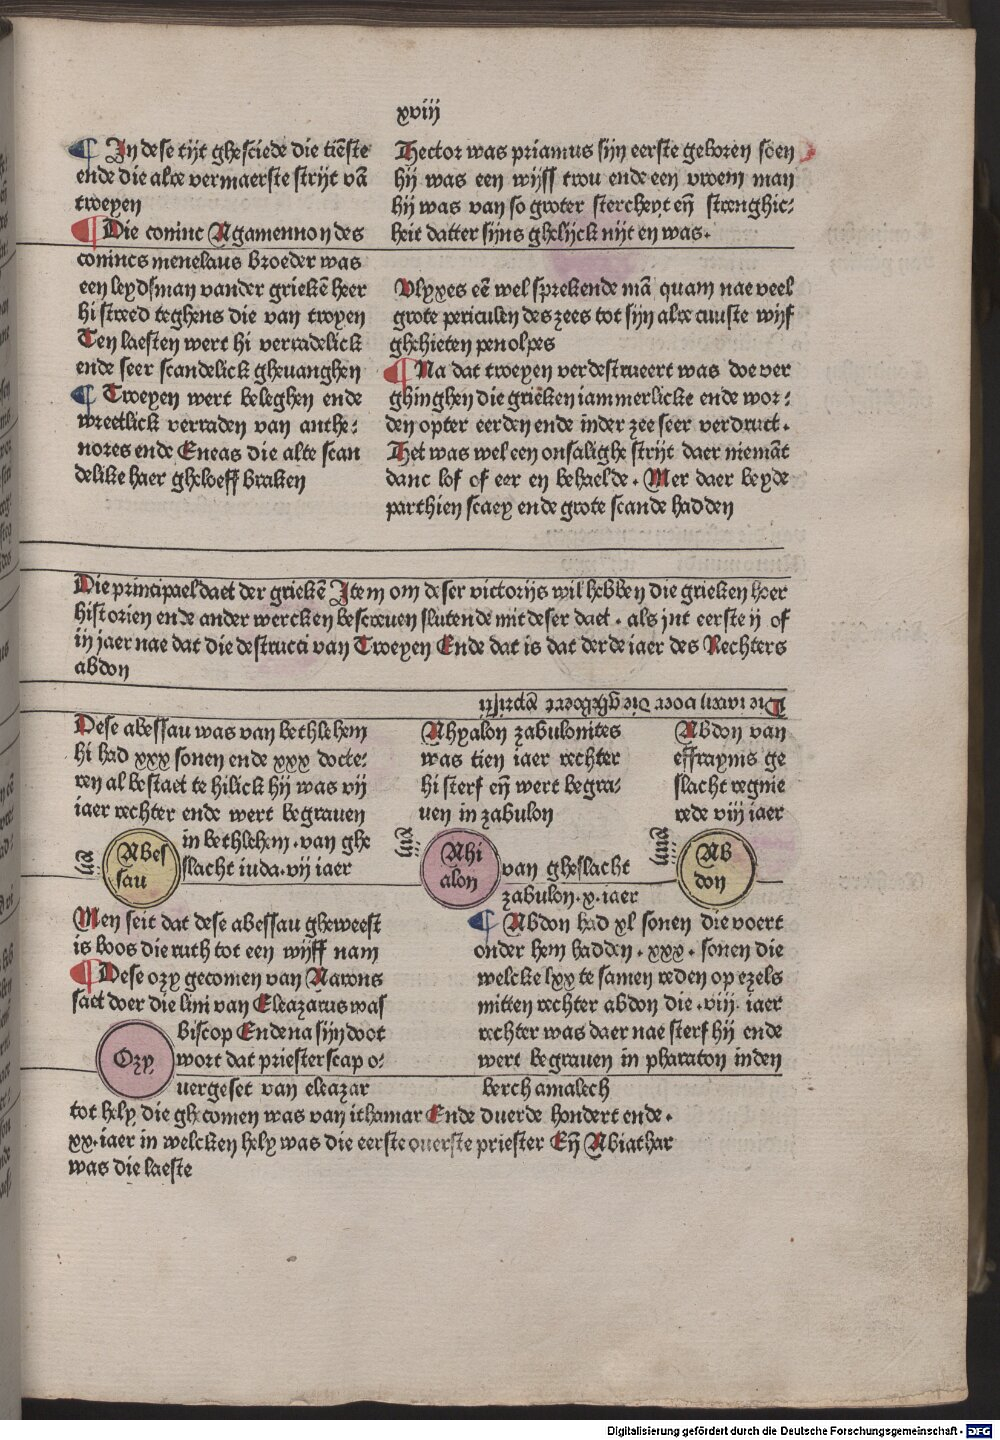 xviij
In dese tijt ghesciede die tiēste
ende die alre vermaerste strijt vā
troeyen
Die coninc Agamennon des
conincs menelaus broeder was
een leydsman vander griekē heer
hi streed teghens die van troyen
Ten laesten wert hi verradelick
ende seer scandelick gheuanghen
Troeyen wert beleghen ende
wreetlick verraden van anthe⸗
nores ende Eneas die alte scan
delike haer gheloeff braken
Hector was priamus sijn eerste geboren soen
hij was een wijff trou ende een vroem man
hij was van so groter stercheyt eñ strenghic⸗
heit datter sijns ghelijck nijt en was.
Vlyxes eē wel sprekende mā quam nae veel
grote periculen des zees tot sijn alre cuuste wijf
ghehieten penolpes
Na dat troeyen verdestrueert was doe ver
ghinghen die grieken iammerlicke ende wor⸗
den opter eerden ende inder zee seer verdruct.
Het was wel een onsalighe strijt daer niemāt
danc lof of eer en behaelde. Mer daer beyde
parthien scaey ende grote scande hadden
Die principael daet der griekē Item om deser victorijs wil hebben die grieken hoer
historien ende ander wercken bescreuen slutende mit deser daet. als jnt eerste ij of
iij jaer nae dat die destructi van Troeyen Ende dat is dat derde iaer des Rechters
abdon
Die iaren voer die gheboert cristi
Dese abessau was van bethlehem
hi had xxx sonen ende xxx docte⸗
ren al bestaet te hilick hij was vij
iaer rechter ende wert begrauen
in bethlehem. van ghe
slacht iuda. vij iaer
Abes
sau
Ahyalon zabulonites
was tien iaer rechter
hi sterf eñ wert begra⸗
uen in zabulon
Ahi
alon
van gheslacht
zabulon. x. iaer
Abdon van
effraymis ge
slacht regnie
rede viij iaer
Ab
don
Men seit dat dese abessau gheweest
is boos die ruth tot een wijff nam
Dese ozy gecomen van Aarons
saet doer die lini van Eleazarus was
Ozy.
biscop Ende na sijn doot
wort dat priesterscap o⸗
uergeset van eleazar
tot hely die ghecomen was van ithamar Ende duerde hondert ende.
xx. iaer in welcken hely was die eerste ouerste priester Eñ Abiathar
was die laeste
Abdon had xl sonen die voert
onder hem hadden. xxx. sonen die
welcke lxx te samen reden op ezels
mitten rechter abdon die. viij. iaer
rechter was daer nae sterf hij ende
wert begrauen in pharaton inden
berch amalech
Digitalisierung gefördert durch die Deutsche Forschungsgemeinschaft - DFG